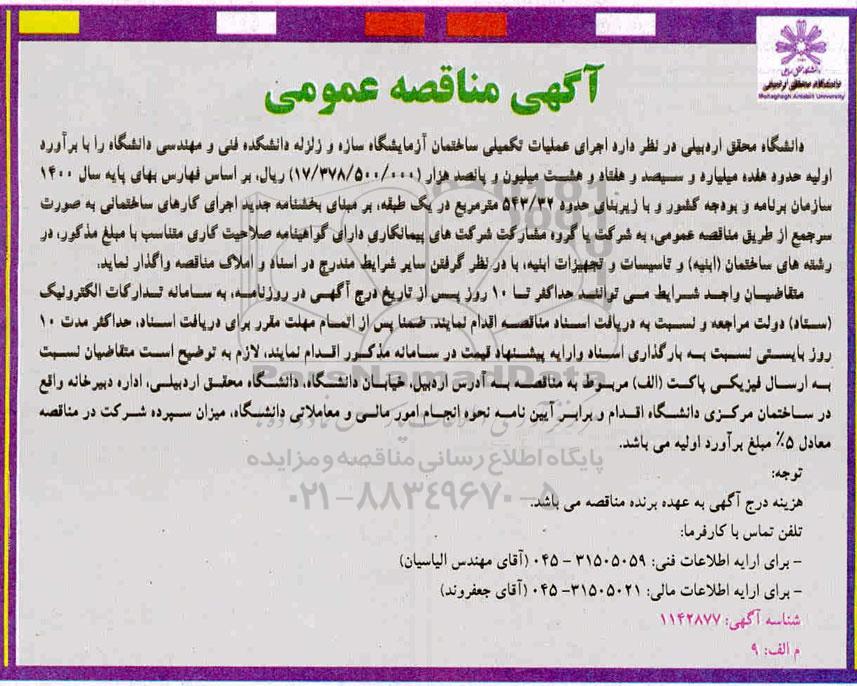 دانشگاه محقق اردبیلی
Mohaghegh Ardabili University
آگهی مناقصه عمومی
دانشگاه محقق اردبیلی در نظر دارد اجرای عملیات تکمیلی ساختمان آزمایشگاه سازه و زلزله دانشکده فنی و مهندسی دانشگاه را با برآورد
اولیه حدود هفده میلیارد و سیصد و هفتاد و هشت میلیون و پانصد هزار (۱۷/۳۷۸/۵۰۰/۰۰۰) ریال، بر اساس فهارس بهای پایه سال ۱۴۰۰
سازمان برنامه و بودجه کشور و با زیربنای حدود ۵۴۳/۳۲ مترمربع در یک طبقه، بر مبنای بخشنامه جدید اجرای کارهای ساختمانی به صورت
سرجمع از طریق مناقصه عمومی، به شرکت یا گروه مشارکت شرکت های پیمانکاری دارای گواهینامه صلاحیت کاری متناسب با مبلغ مذکور، در
رشته های ساختمان (ابنیه) و تاسیسات و تجهیزات ابنیه، با در نظر گرفتن سایر شرایط مندرج در اسناد و املاک مناقصه واگذار نماید.
متقاضیان واجد شرایط می توانند حداکثر تا ۱۰ روز پس از تاریخ درج آگهی در روزنامه، به سامانه تدارکات الکترونیک
(ستاد) دولت مراجعه و نسبت به دریافت اسناد مناقصه اقدام نمایند. ضمنا پس از اتمام مهلت مقرر برای دریافت اسناد، حداکثر مدت ۱۰
روز بایستی نسبت به بارگذاری اسناد وارایه پیشنهاد قیمت در سامانه مذکور اقدام نمایند، لازم به توضیح است متقاضیان نسبت
به ارسال فیزیکی پاکت (الف) مربوط به مناقصه به آدرس اردبیل، خیابان دانشگاه، دانشگاه محقق اردبیلی، اداره دبیرخانه واقع
در ساختمان مرکزی دانشگاه اقدام و برابر آیین نامه نحوه انجام امور مالی و معاملاتی دانشگاه، میزان سپرده شرکت در مناقصه
معادل ۵٪ مبلغ برآورد اولیه می باشد.
ParsNamadData
پایگاه اطلاع رسانی مناقصه و مزایده
۰۲۱-۸۸۳۴۹۶۷۰-۵
توجه:
هزینه درج آگهی به عهده برنده مناقصه می باشد.
تلفن تماس با کارفرما:
- برای ارایه اطلاعات فنی: ۳۱۵۰۵۰۵۹ - ۰۴۵ (آقای مهندس الیاسیان)
- برای ارایه اطلاعات مالی: ۳۱۵۰۵۰۲۱- ۰۴۵ (آقای جعفروند)
شناسه آگهی: ۱۱۴۲۸۷۷
م الف: ۹